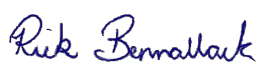 Rick Bennallack